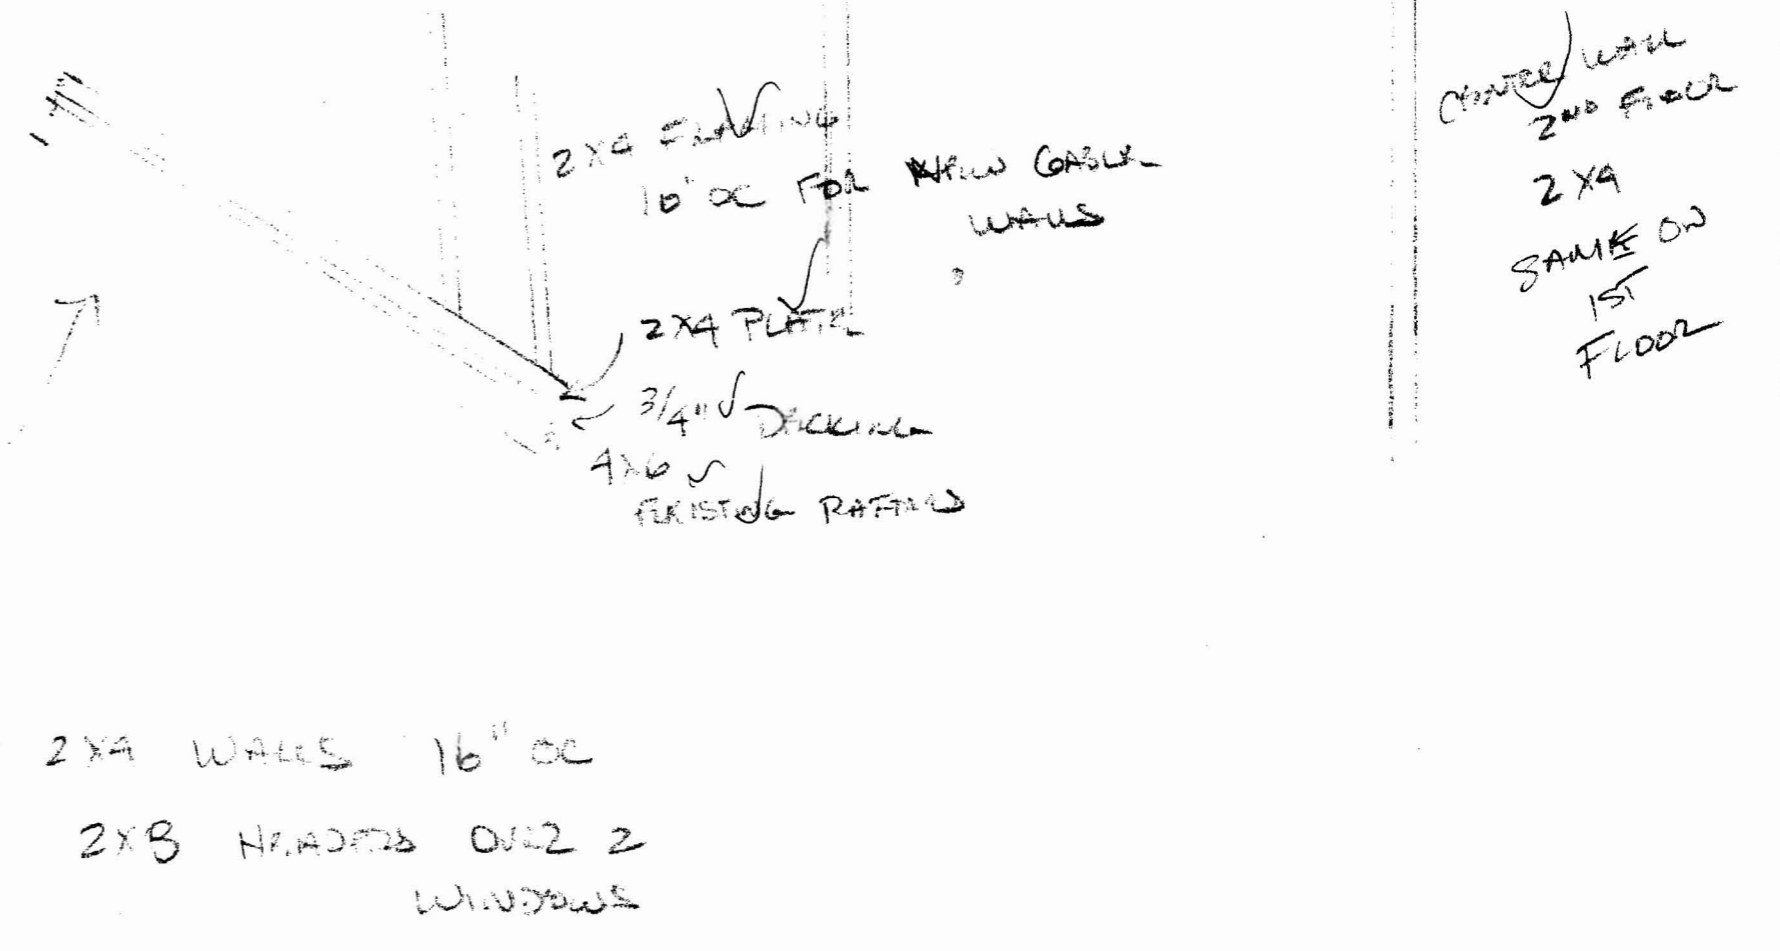 2X4 FRAMING
16" OC FOR NEW GABLE
WALLS
2X4 PLATE
3/4" DECKING
4X6
EXISTING RAFTERS
CENTER WALL
2ND FLOOR
2X4
SAME ON
1ST
FLOOR
2X4 WALLS 16" OC
2X8 HEADERS OVER 2
WINDOWS